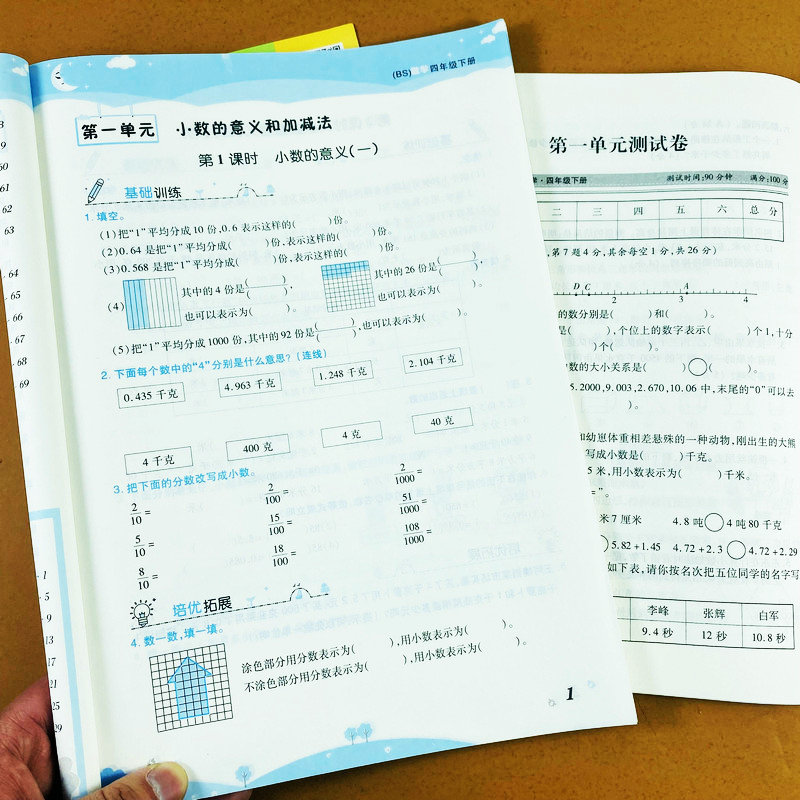 (BS) 数学 四年级下册
第一单元 小数的意义和加减法
第1课时 小数的意义(一)
基础训练
1. 填空。
(1)把“1”平均分成10份,0.6表示这样的( )份。
(2)0.64是把“1”平均分成( )份,表示这样的( )份。
(3)0.568是把“1”平均分成( )份,表示这样的( )份。
(4) 其中的4份是( )/( ), 其中的26份是( )/( ),
也可以表示为( )。 也可以表示为( )。
(5)把“1”平均分成1000份,其中的92份是( )/( ),也可以表示为( )。
2. 下面每个数中的“4”分别是什么意思?(连线)
0.435千克 4.963千克 1.248千克 2.104千克
4千克 400克 4克 40克
3. 把下面的分数改写成小数。
2/10= 2/100= 2/1000=
5/10= 15/100= 51/1000=
8/10= 18/100= 108/1000=
培优拓展
4. 数一数,填一填。
涂色部分用分数表示为( ),用小数表示为( )。
不涂色部分用分数表示为( ),用小数表示为( )。
1
第一单元测试卷
学·四年级下册 测试时间:90分钟 满分:100分
二 三 四 五 六 总分
第7题4分,其余每空1分,共26分)
D C A
2 3 4
的数分别是( )和( )。
是( ),个位上的数字表示( )个1,十分
)个( )。
数的大小关系是( )○( )。
5.2000,9.003,2.670,10.06中,末尾的“0”可以去
)。
和幼崽体重相差悬殊的一种动物,刚出生的大熊
写成小数是( )千克。
5米,用小数表示为( )千米。
=”。
米7厘米 4.8吨○4吨80千克
5.82+1.45 4.72+2.3○4.72+2.29
如下表,请你按名次把五位同学的名字写
李峰 张辉 白军
9.4秒 12秒 10.8秒
3
9
60
61
62
63
64
65
67
68
69
1
5
9
13
17
21
25
29